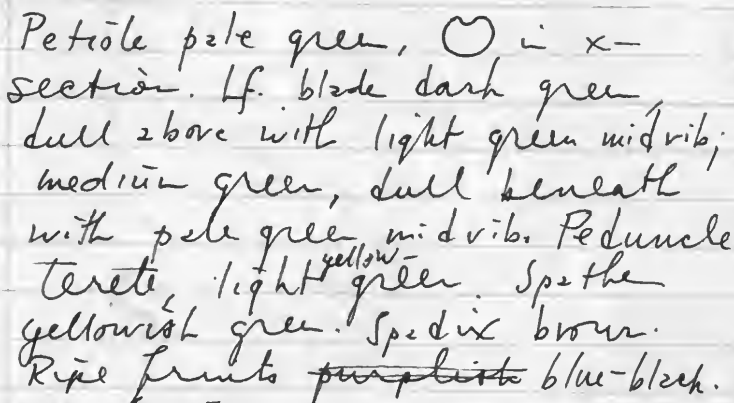 Petiole pale green, in x-
section. Lf. blade dark green,
dull above with light green midrib;
medium green, dull beneath
with pale green midrib. Peduncle
terete, light yellow-green. Spathe
yellowish green. Spadix brown.
Ripe fruits purplish blue-black.